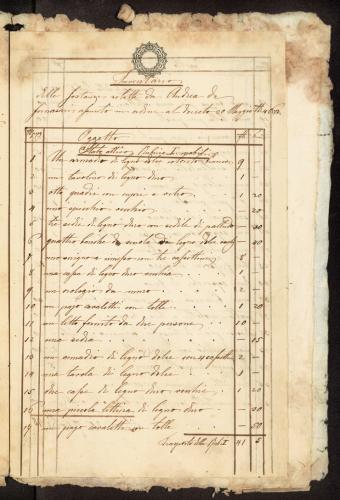 Inventario
della sostanza relitta da Andrea de
assunto in ordine al decreto 20 Maggio
Oggetto
Stato attivo
1 Un armadio di legno dolce 9
2 un tavolino di legno duro 1 -
3 otto quadri con cornici e vetro 1 20
4 uno specchio vecchio - 20
5 tre sedie di legno duro con sedile di - 30
6 quattro banche di scuola di legno dolce - 40
7 uno con tre cassettini 8 -
8 una cassa di legno duro vecchia 1 -
9 un orologio da muro 2 -
10 un pajo cavaletti con tolle 1 20
11 un letto fornito da due persone 10 -
12 una sedia - 15
13 un armadio di legno dolce 2 -
14 una tavola di legno dolce 1 -
15 due casse di legno duro vecchie 1 20
16 una piccola lettiera di legno duro - 50
17 un pajo cavaletti con tolle - 50
41 5